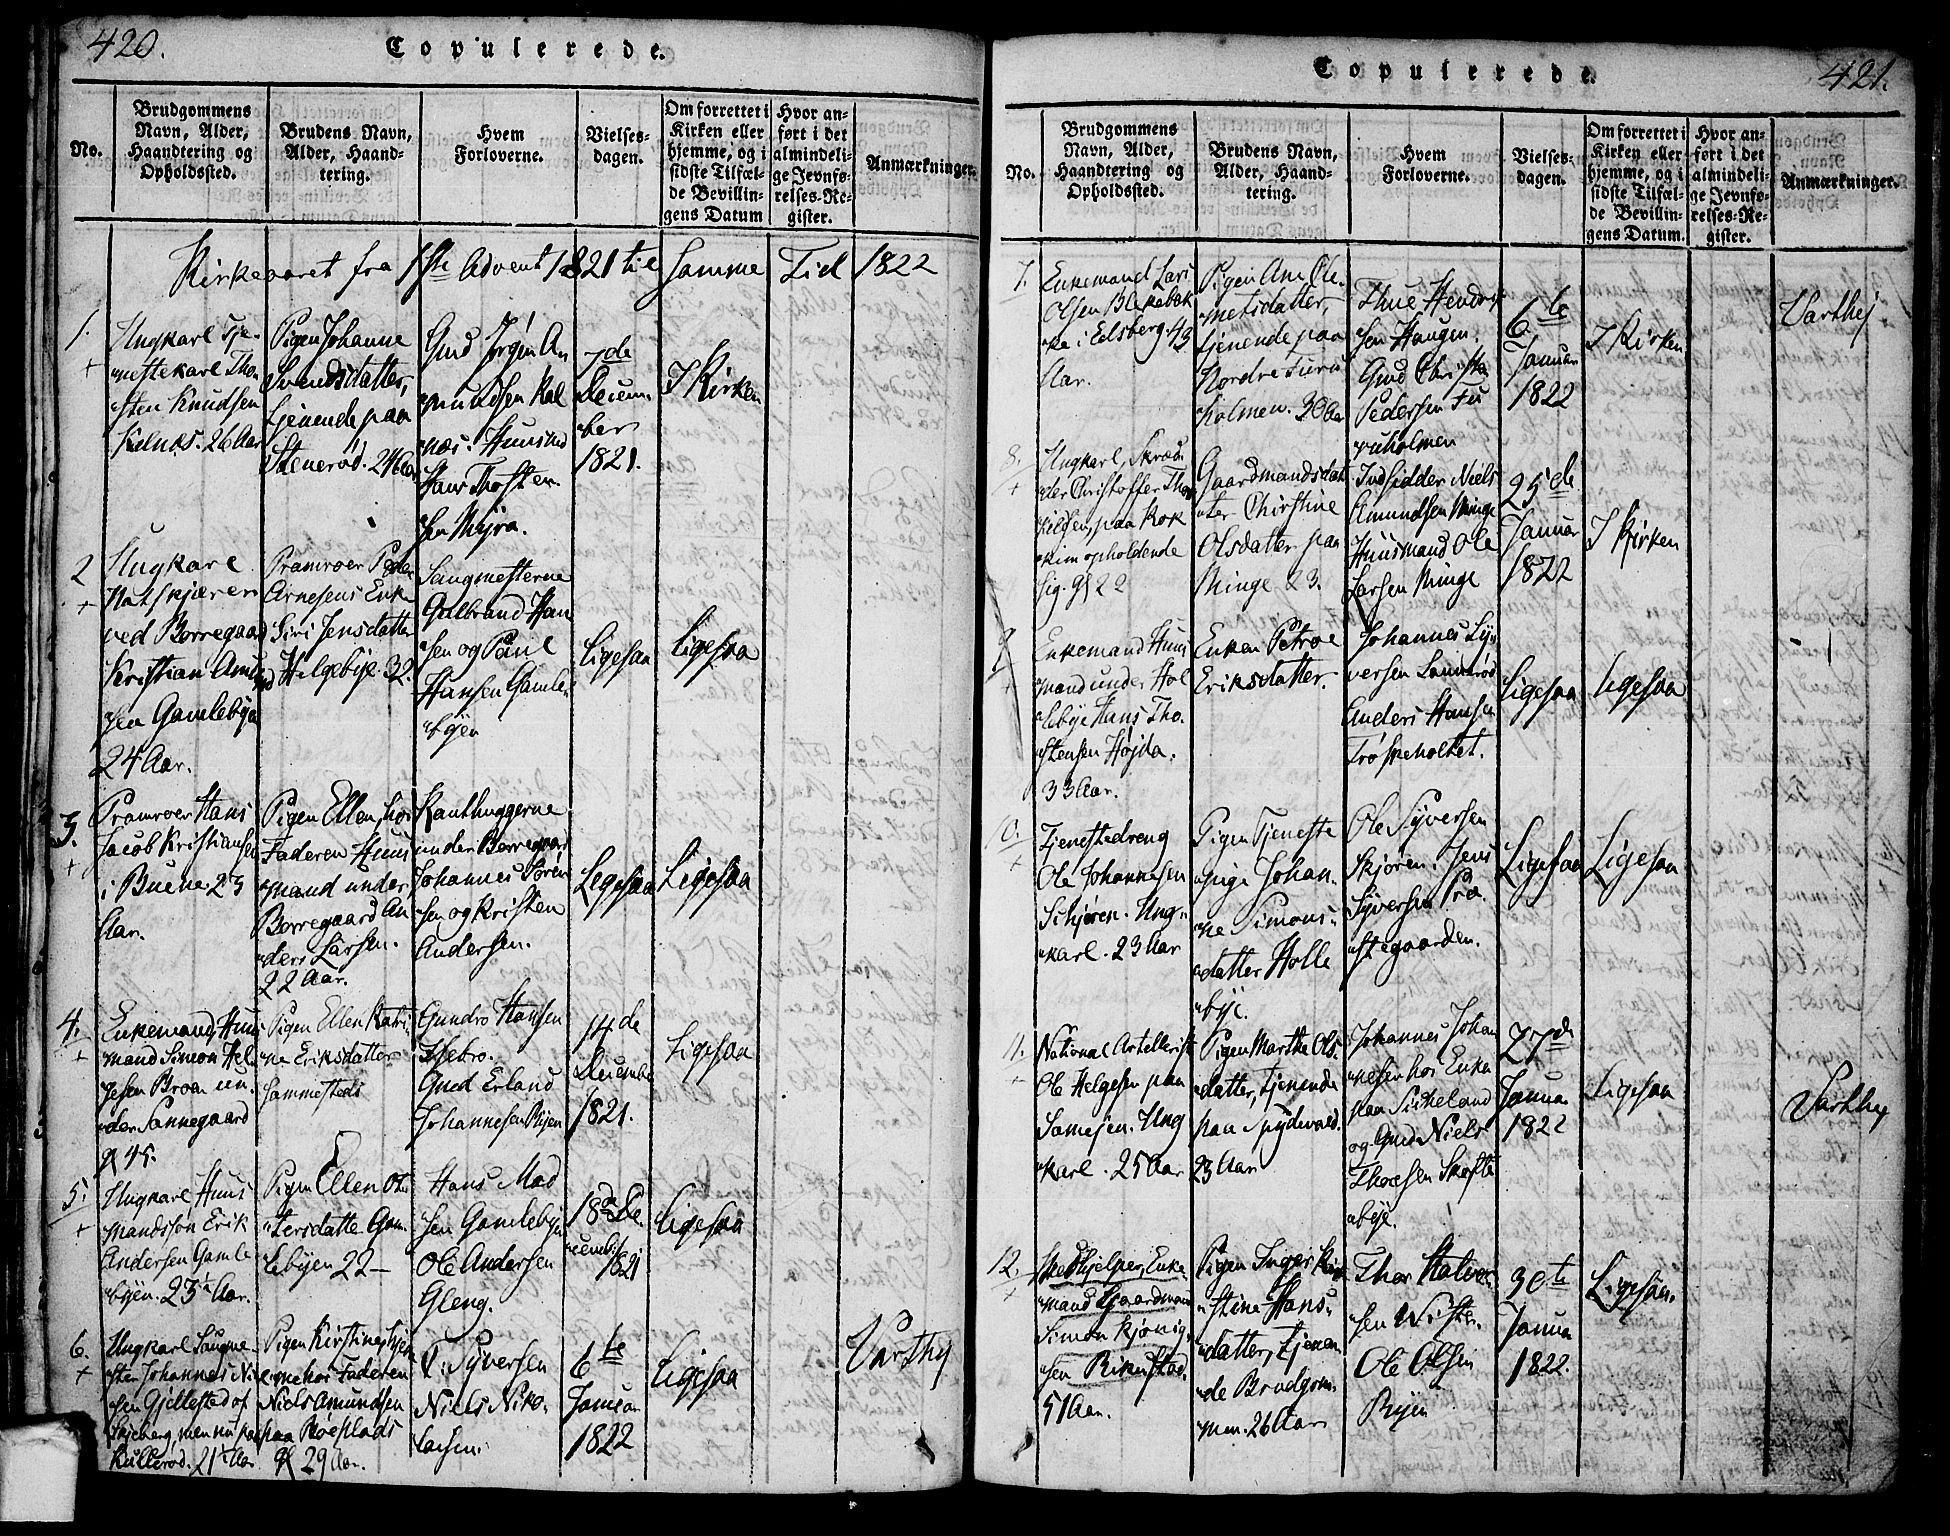 420.
Copulerede.
No.
Brudgommens
Navn, Alder,
Haandtering og
Opholdssted.
Brudens Navn,
Alder, Haand-
tering.
Hvem
Forloverne.
Vielses-
dagen.
Om forrettet i
Kirken eller
hjemme, og i
sidste Tilfæl-
de Bevillin-
gens Datum
Hvor an-
ført i det
almindeli-
ge Jevnfø-
relses-Re-
gister.
Anmærkninger.
Kirkeaaret fra 1ste Advent 1821 til samme Tid 1822
1.
+
Ungkarl Tje-
nestekarl Tho-
sten Knudsen
Kelnæs. 26 Aar
Pigen Johanne
Svendsdatter,
tjenende paa
Stenerød. 24 Aar
Gmd Jørgen Am
mundsen Kal
næs. Huusmd
Hans Thosten
sen Myra.
7de
Decem
ber
1821.
I Kirken
2
+
Ungkarl
Matskjærer
ved Borregaard
Kristian Amund
sen Gamlebyen
24 Aar.
Pramroer Peder
Arnesens Enke
Siri Jensdatter
Helgebye 32.
Saugmesterne
Gulbrand Han
sen og Paul
Hansen Gamle
byen
Ligesaa
Ligesaa
3.
+
Pramroer Hans
Jacob Kristiansen
i Buene. 23
Aar.
Pigen Ellen, hos
Faderen Huus
mand under
Borregaard An
ders Larsen.
22 Aar.
Kanthuggerne
under Borregaard
Johannes Søren
sen og Kristen
Andersen.
Ligesaa
Ligesaa
4.
+
Enkemand, Huus
mand Simon Hel
gesen Braaen un
der Sannegaard
gl 45.
Pigen Ellen Katri
ne Eriksdatter
sammesteds
Gundro Hansen
Ilsebro.
Gmd Erland
Johannesen Byen
14de
December
1821.
Ligesaa
5.
+
Ungkarl Huus
mandssøn Erik
Andersen Gamle
byen. 23 1/2 Aar.
Pigen Ellen Ot
tersdatte Gam
lebyen 22
Hans Mad
sen Gamlebyen
Ole Andersen
Gleng.
18de De
cembr
1821
Ligesaa
6.
+
Ungkarl Saugme
sten Johannes Niel
sen Gjellestad af
Skjeberg, men nu paa
Kullerød. 21 1/2 Aar
Pigen Kirstine hjem
me hos Faderen
Niels Amundsen
paa Røeplads
gl 29 Aar.
T. Syversen
Niels Niko-
laisen.
6te
Januar
1822
Ligesaa
Varthey
421.
Copulerede.
No.
Brudgommens
Navn, Alder,
Haandtering og
Opholdssted.
Brudens Navn,
Alder, Haand-
tering.
Hvem
Forloverne.
Vielses-
dagen.
Om forrettet i
Kirken eller
hjemme, og i
sidste Tilfæl-
de Bevillin-
gens Datum.
Hvor an-
ført i det
almindeli-
ge Jevnfø-
relses-Re-
gister.
Anmærkninger.
7.
Enkemand Lars
Olsen Blekebak
ke i Edsberg. 43
Aar.
Pigen Ane Ole
metsdatter,
tjenende paa
Nordre Furu
holmen. 30 Aar
Thue Hendrik
sen Haugen,
Gmd Christen
Pedersen Fu
ruholmen
6te
Januar
1822
I Kirken
Varthey
8.
+
Ungkarl, Skræd
der Christoffer Thor
kildsen, paa Kok
kim opholdende
sig. gl 22
Gaardmandsdat
ter Chirstine
Olsdatter paa
Minge 23.
Indsidder Niels
Amundsen Minge
Huusmand Ole
Larsen Minge
25de
Januar
1822
I Kirken
9
+
Enkemand Huus
mand under Hol
lebye Hans Tho-
stensen Højda.
33 Aar.
Enken Petroe
Eriksdatter.
Johannes Sy
versen Lannerød
Anders Hansen
Trøskeholtet.
Ligesaa
Ligesaa
10.
+
Tjenestedreng
Ole Johannesen
Schjøren. Ung-
karl. 23 Aar
Pigen Tjeneste
pige Johan
ne Simons-
datter Holle
bye.
Ole Syversen
Skjøren. Jens
Syversen Præ
stegaarden.
Ligesaa
Ligesaa
11.
+
National Artellerist
Ole Helgesen paa
Samejen. Ung
karl. 25 Aar
Pigen Marthe Ols-
datter, tjenende
paa Spydevold.
23 Aar
Johannes Johan
nesen hos Enken
paa Sikeland
og Gmd Niels
Thoresen Skofte
bye.
27de
Januar
1822
Ligesaa
Varthey
12.
+
Medhjelper, Enke-
mand Gaardmand
Simon Kjønig-
sen Rikenstad.
51 Aar.
Pigen Inger Kir
stine Hans-
datter, tjenen
de Brudgom-
men. 26 Aar
Thor Halvor
sen Wister.
Ole Olsen
Byen
30te
Januar
1822.
Ligesaa.